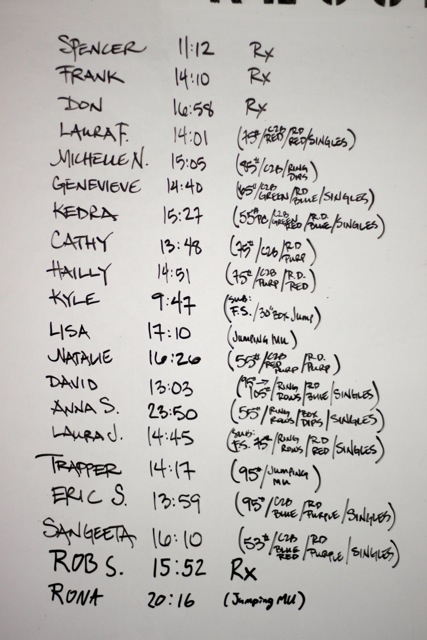 SPENCER 11:12 Rx
FRANK 14:10 Rx
DON 16:58 Rx
LAURA F. 14:01 (75#/C2B RED/RD RED/SINGLES)
MICHELLE N. 15:05 (85#/C2B/RING DIPS)
GENEVIEVE 14:40 (65#/C2B GREEN/RD BLUE/SINGLES)
KEDRA 15:27 (55#/C2B GREEN RED/R.D. BLUE/SINGLES)
CATHY 13:48 (75#/C2B/RD PURP)
HAILLY 14:51 (75#/C2B PURP/R.D. RED)
KYLE 9:47 (SUB: F.S./30" BOX JUMP)
LISA 17:10 (JUMPING MU)
NATALIE 16:26 (55#/C2B RED PURP/R.D. PURP)
DAVID 13:03 (95#→105#/RING ROWS/RD BLUE/SINGLES)
ANNA S. 23:50 (55#/RING ROWS/BOX DIPS/SINGLES)
LAURA J. 14:45 (SUB: F.S. 45#/RING ROWS/RD RED/SINGLES)
TRAPPER 14:17 (95#/JUMPING MU)
ERIC S. 13:59 (95#/C2B BLUE/RD PURPLE/SINGLES)
SANGEETA 16:10 (53#/C2B BLUE RED/RD PURPLE/SINGLES)
ROB S. 15:52 Rx
RONA 20:16 (Jumping MU)